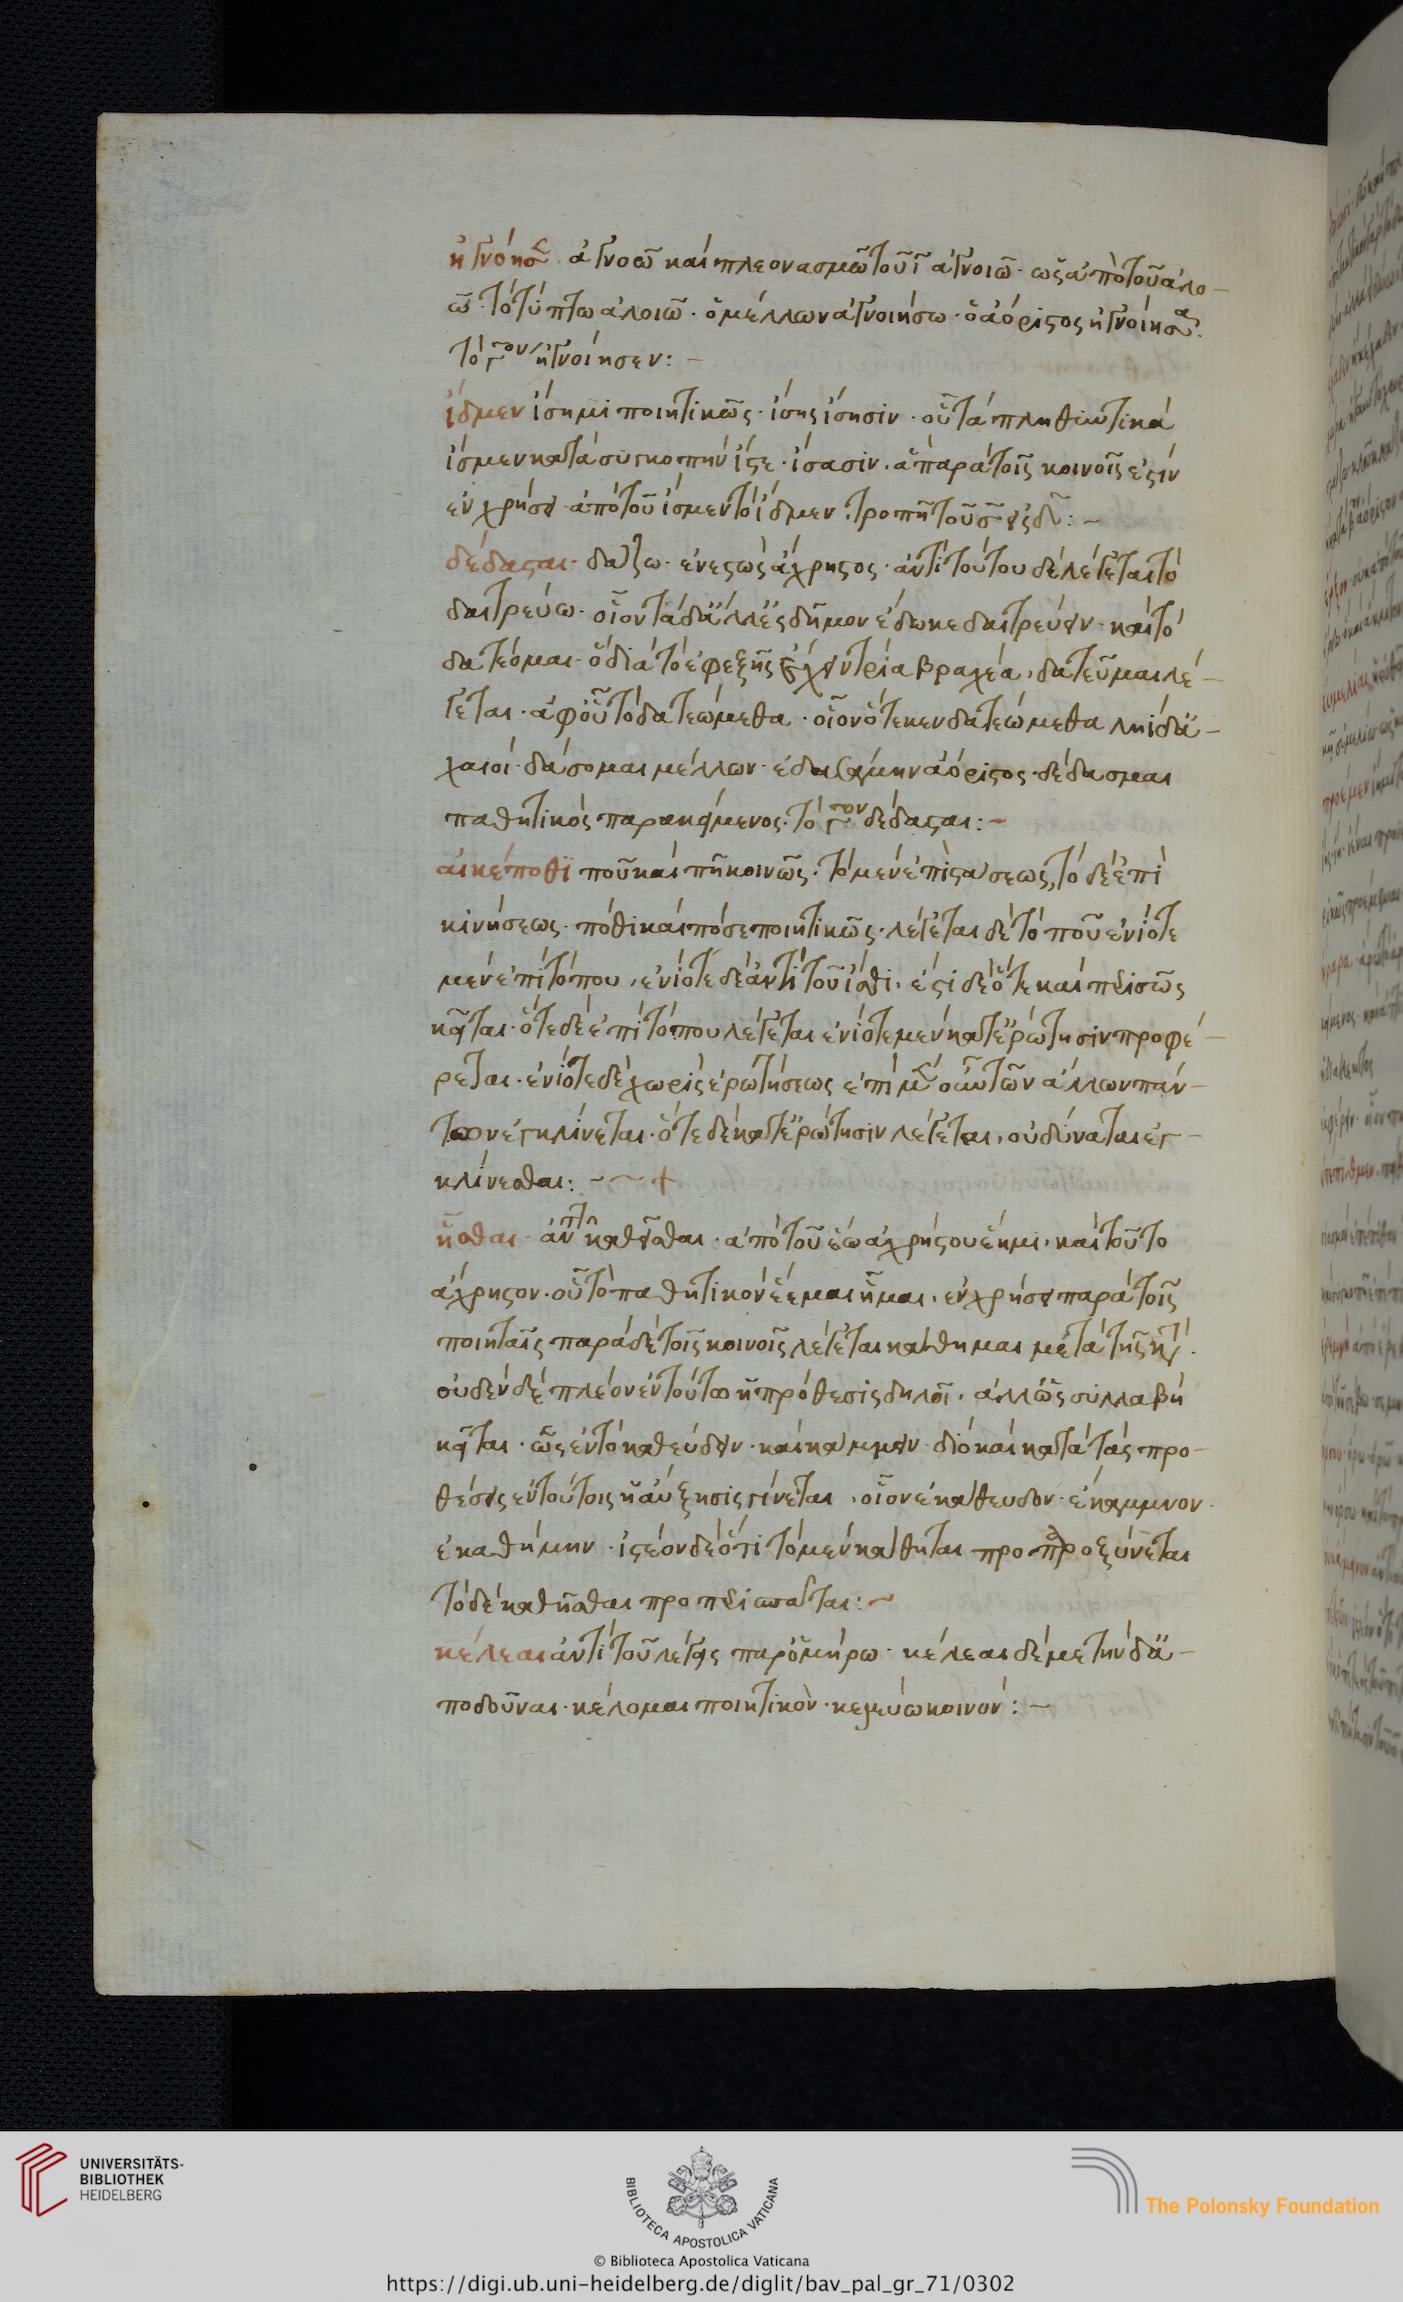 ἠγνόησ ἀγνοῶ καὶ πλεονασμῶ τοῦ ϊ ἀγνοιῶ· ὡς ἀπὸ τοῦ ἀλο-
ῶ· τὸ τύπτω ἀλοιῶ· ὁ μέλλων ἀγνοιήσω· ὁ ἀόριστος ἠγνοίησα.
τὸ γον ἠγνοίησεν: -
ἴδμεν ἴσημι ποιητικῶς· ἴσης ἴσησιν· οὗ τὰ πληθυντικὰ
ἴσμεν κατὰ συγκοπὴν ἴστε· ἴσασιν· ἃ παρὰ τοῖς κοινοῖς ἐστὶν
ἐν χρήσει· ἀπὸ τοῦ ἴσμεν τὸ ἴδμεν· τροπῆ τοῦ σ εἰς δ: -
δέδασται· δάζω· ἐνεστὼς ἄχρηστος· ἀντὶ τούτου δὲ λέγεται τὸ
δαιτρεύω· οἷον τὰ δ' ἄλλ' ἐς δῆμον ἔδωκε δαιτρεύειν· καὶ τὸ
δατέομαι· ὃ διὰ τὸ ἐφεξῆς ἔχειν τρία βραχέα, δατεῦμαι λέ-
γεται· ἀφ' οὗ τὸ δατεώμεθα· οἷον ὅτε κεν δατεώμεθα ληίδ' ἀ-
χαιοί· δάσομαι μέλλων· ἐδασάμην ἀόριστος· δέδασμαι
παθητικὸς παρακείμενος· τὸ γον δέδασται: ~
αἴ κέ ποθι ποῦ καὶ πῆ κοινῶς· τὸ μὲν ἐπὶ στάσεως, τὸ δὲ ἐπὶ
κινήσεως· πόθι καὶ πόσε ποιητικῶς· λέγεται δὲ τὸ ποῦ ἐνίοτε
μὲν ἐπὶ τόπου, ἐνίοτε δὲ ἀντὶ τοῦ ἴσθι, ἔστι δ' ὅτε καὶ περισσῶς
κεῖται· ὅτε δὲ ἐπὶ τόπου λέγεται ἐνίοτε μὲν κατ' ἐρώτησιν προφέ-
ρεται· ἐνίοτε δὲ χωρὶς ἐρωτήσεως ἐπὶ μ τῶν ἄλλων πάν-
των ἐγκλίνεται· ὅτε δὲ κατ' ἐρώτησιν λέγεται, οὐ δύναται ἐγ-
κλίνεσθαι: - ~ +
ἧσθαι ἀντὶ καθεῖσθαι· ἀπὸ τοῦ ἕω ἀχρήστου ἕημι, καὶ τοῦτο
ἄχρηστον· οὗ τὸ παθητικὸν ἕεμαι ἧμαι, ἐν χρήσει παρὰ τοῖς
ποιηταῖς παρὰ δὲ τοῖς κοινοῖς λέγεται κάθημαι μετὰ τῆς κτ.
οὐδὲν δὲ πλέον ἐν τούτω ἡ πρόθεσις δηλοῖ, ἀλλ' ὡς συλλαβὴ
κεῖται· ὡς ἐν τὸ καθεύδειν· καὶ καμμύειν· διὸ καὶ κατὰ τὰς προ-
θέσεις ἐν τούτοις ἡ αὔξησις γίνεται, οἷον ἐκάθευδον· ἐκάμμυον
ἐκαθήμην· ἰστέον δὲ ὅτι τὸ μὲν κάθηται προπαροξύνεται
τὸ δὲ καθῆσθαι προπερισπᾶται: ~
κέλεαι ἀντὶ τοῦ λέγεις παρ' ὁμήρω· κέλεαι δέ με τήνδ' ἀ-
ποδοῦναι· κέλομαι ποιητικὸν· κελεύω κοινόν: -
UNIVERSITÄTS-
BIBLIOTHEK
HEIDELBERG
BIBLIOTECA APOSTOLICA VATICANA
The Polonsky Foundation
© Biblioteca Apostolica Vaticana
https://digi.ub.uni-heidelberg.de/diglit/bav_pal_gr_71/0302